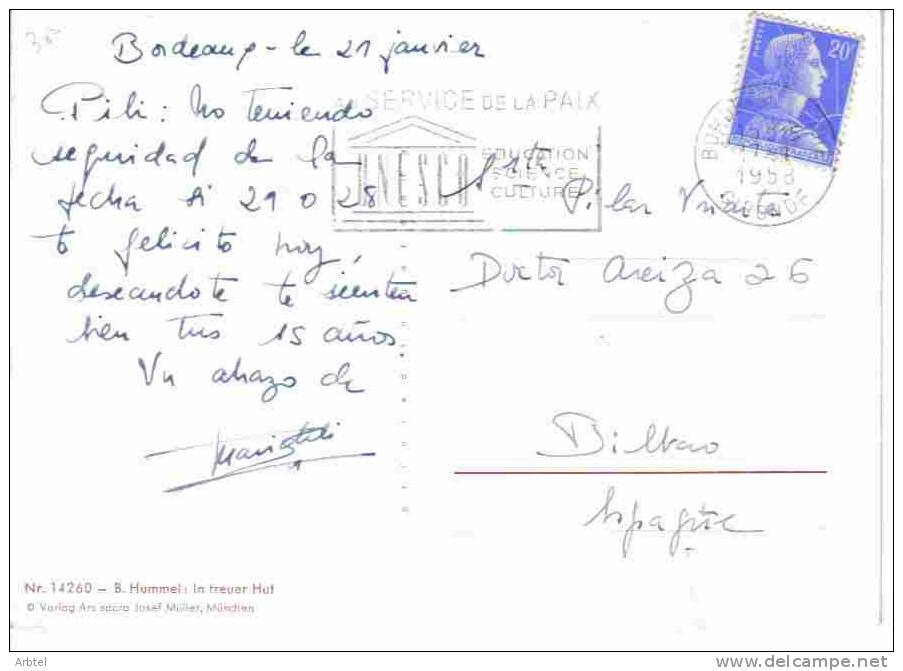 35
Bordeaux - le 21 janvier
Pili: No teniendo
seguridad de la
fecha si 21 o 28
te felicito hoy,
deseandote te sienten
bien tus 15 años.
Un abrazo de
SERVICE DE LA PAIX
UNESCO
EDUCATION
SCIENCE
CULTURE
POSTES
20F
1958
GIRONDE
Srta Pilar
Doctor Areiza 26
Bilbao
Espagne
Nr. 14260 – B. Hummel: In treuer Hut
© Verlag Ars sacra Josef Müller, München
Arbtel
www.delcampe.net